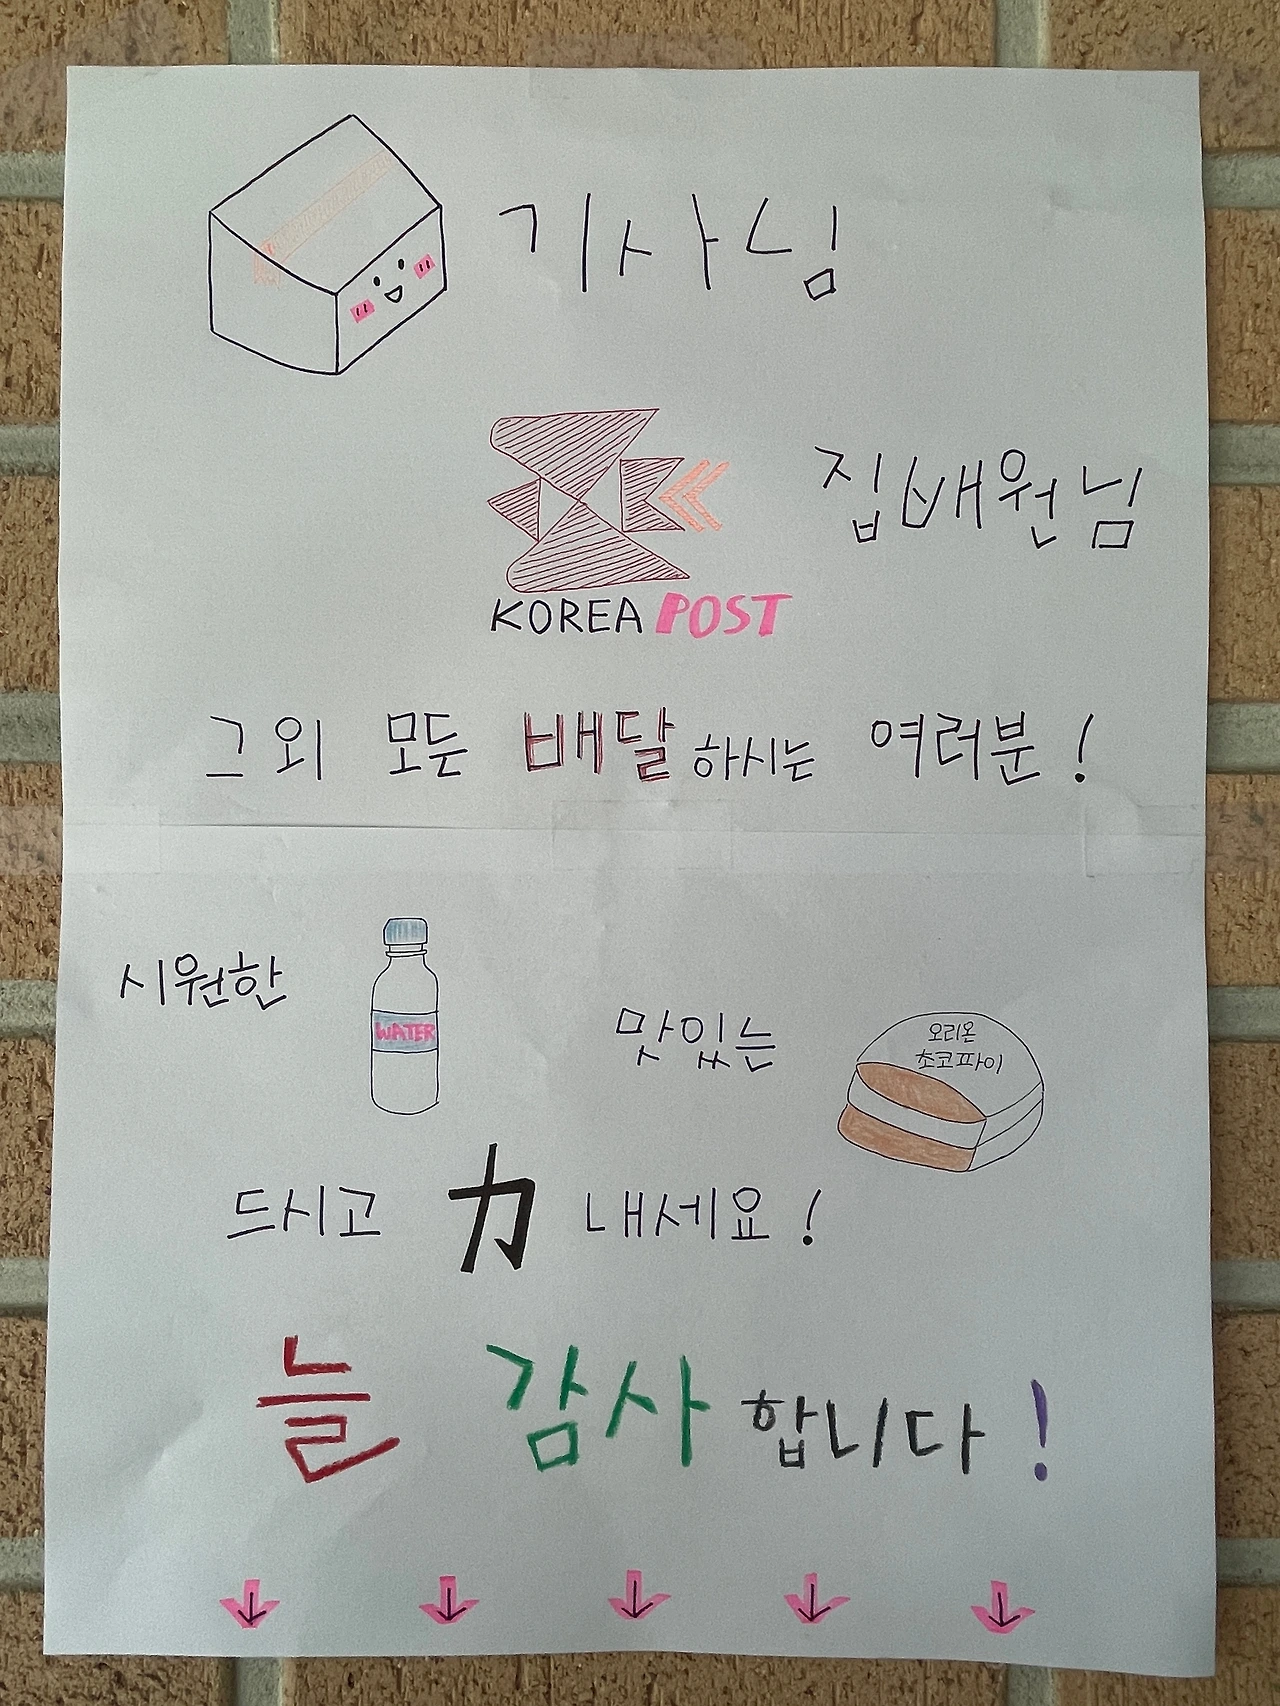 기사님
집배원님
KOREA POST
그외 모든 배달하시는 여러분!
시원한
WATER
맛있는
오리온
초코파이
드시고 力 내세요!
늘 감사합니다!